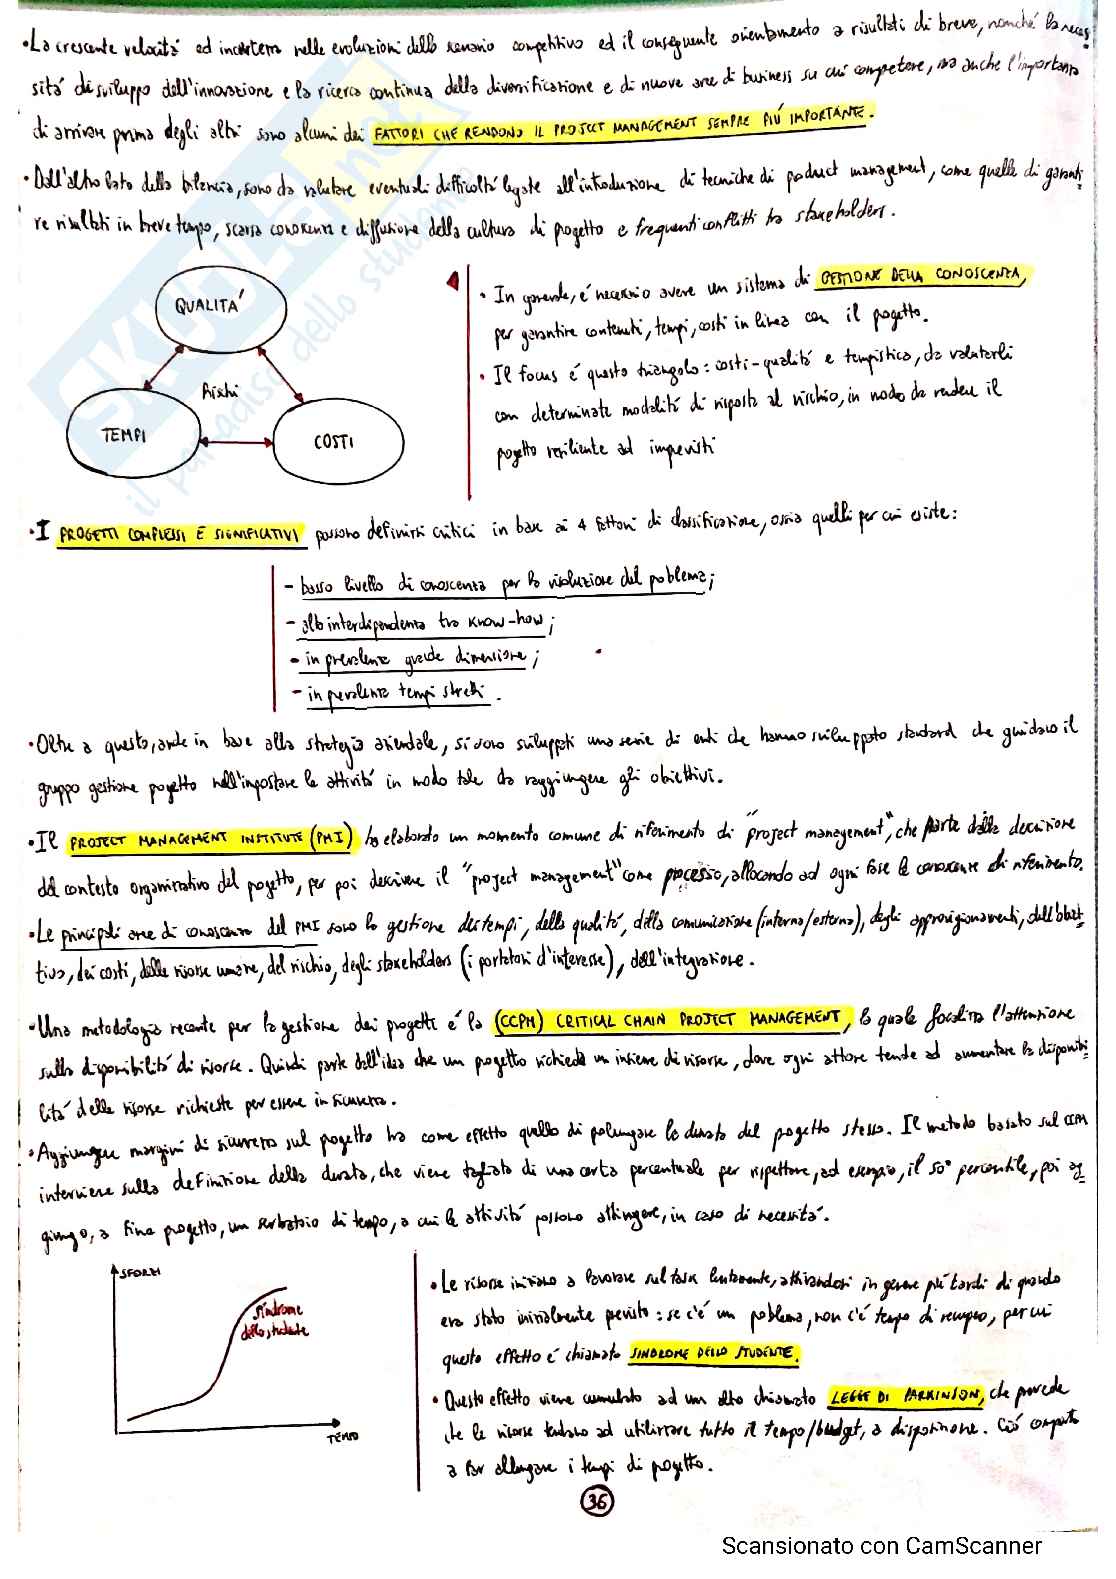 •La crescente velocità ed incertezza nelle evoluzioni dello scenario competitivo ed il conseguente orientamento a risultati di breve, nonché la neces
sità di sviluppo dell'innovazione e la ricerca continua della diversificazione e di nuove aree di business su cui competere, ma anche l'importanza
di arrivare prima degli altri sono alcuni dei FATTORI CHE RENDONO IL PROJECT MANAGEMENT SEMPRE PIÚ IMPORTANTE.
• Dall'altro lato della bilancia, sono da valutare eventuali difficoltà legate all'introduzione di tecniche di product management, come quelle di garanti
re risultati in breve tempo, scarsa conoscenza e diffusione della cultura di progetto e frequenti conflitti tra stakeholders.
QUALITA'
Rischi
TEMPI
COSTI
• In generale, é necessario avere un sistema di GESTIONE DELLA CONOSCENZA,
per garantire contenuti, tempi, costi in linea con il progetto.
• Il focus é questo triangolo: costi-qualità e tempistica, da valutarli
con determinate modalità di risposta al rischio, in modo da rendere il
progetto resiliente ad imprevisti
• I PROGETTI COMPLESSI E SIGNIFICATIVI possono definirsi critici in base ai 4 fattori di classificazione, ossia quelli per cui esiste:
- basso livello di conoscenza per la risoluzione del problema;
- alta interdipendenza tra know-how;
- in prevalenza grande dimensione;
- in prevalenza tempi stretti.
• Oltre a questo, anche in base alla strategia aziendale, si sono sviluppati una serie di enti che hanno sviluppato standard che guidano il
gruppo gestione progetto nell'impostare le attività in modo tale da raggiungere gli obiettivi.
• Il PROJECT MANAGEMENT INSTITUTE (PMI) ha elaborato un momento comune di riferimento di "project management", che parte dalla decisione
del contesto organizzativo del progetto, per poi descrivere il "project management" come processo, allocando ad ogni fase le conoscenze di riferimento.
• Le principali aree di conoscenza del PMI sono la gestione dei tempi, della qualità, della comunicazione (interna/esterna), degli approvigionamenti, dell'obiet
tivo, dei costi, delle risorse umane, del rischio, degli stakeholders (i portatori d'interesse), dell'integrazione.
• Una metodologia recente per la gestione dei progetti é la (CCPM) CRITICAL CHAIN PROJECT MANAGEMENT, la quale focalizza l'attenzione
sulla disponibilità di risorse. Quindi parte dall'idea che un progetto richieda un insieme di risorse, dove ogni attore tende ad aumentare la disponibi
lità delle risorse richieste per essere in sicurezza.
• Aggiungere margini di sicurezza sul progetto ha come effetto quello di prolungare la durata del progetto stesso. Il metodo basato sul CCPM
interviene sulla definizione della durata, che viene tagliata di una certa percentuale per rispettare, ad esempio, il 50° percentile, poi ag
giungo, a fine progetto, un serbatoio di tempo, a cui le attività possono attingere, in caso di necessità.
SFORZI
sindrome
dello studente
TEMPO
• Le risorse iniziano a lavorare sul task lentamente, attivandosi in genere più tardi di quando
era stato inizialmente previsto: se c'é un problema, non c'é tempo di recupero, per cui
questo effetto é chiamato SINDROME DELLO STUDENTE.
• Questo effetto viene cumulato ad un altro chiamato LEGGE DI PARKINSON, che prevede
che le risorse tendano ad utilizzare tutto il tempo/budget, a disposizione. Ció comporta
a far allungare i tempi di progetto.
36
Scansionato con CamScanner
SKUOLA.net
il paradiso dello studente